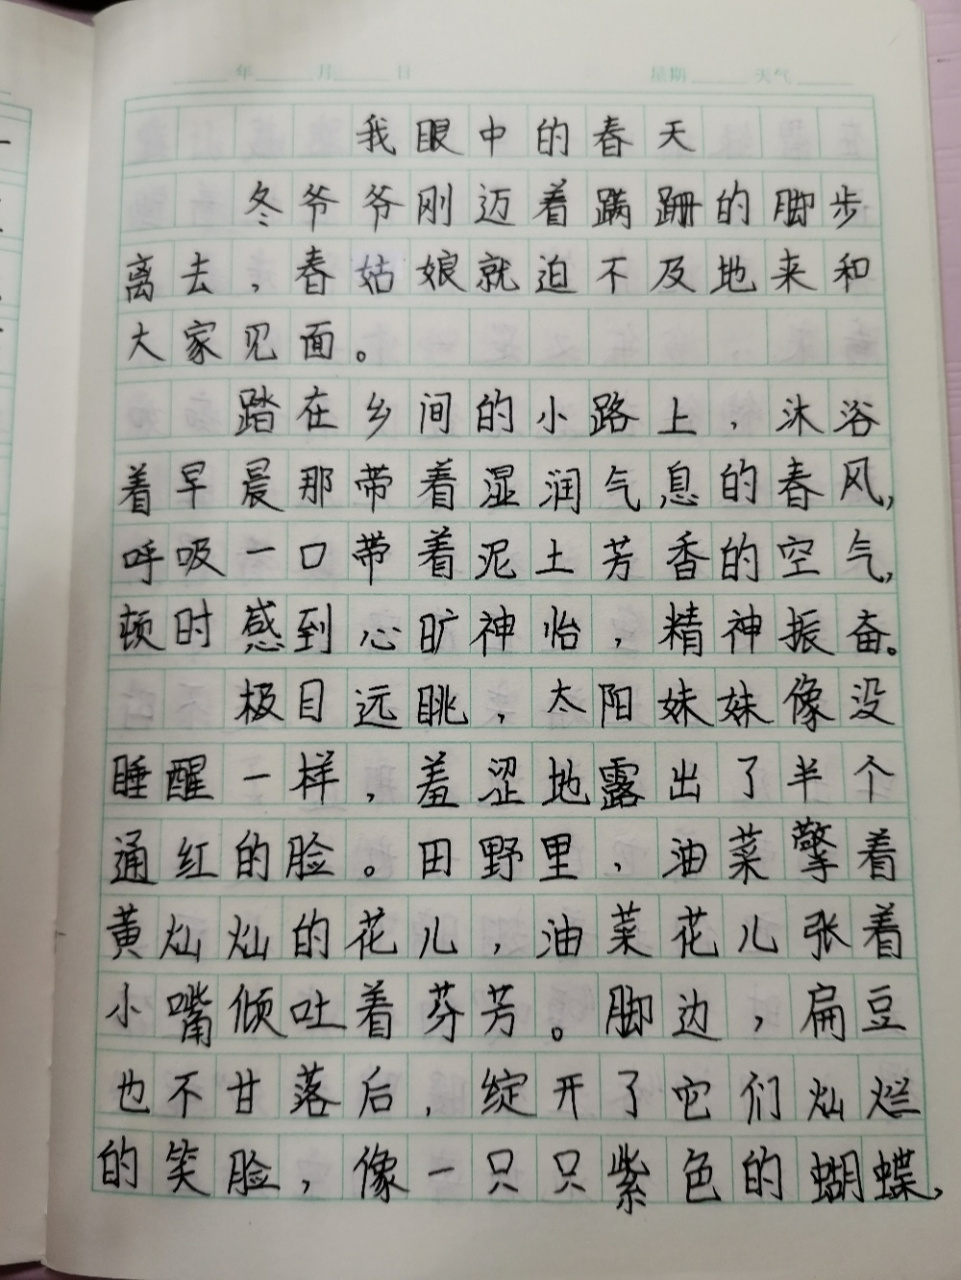 年 月 日 星期 天气
我眼中的春天
冬爷爷刚迈着蹒跚的脚步
离去，春姑娘就迫不及地来和
大家见面。
踏在乡间的小路上，沐浴
着早晨那带着湿润气息的春风，
呼吸一口带着泥土芳香的空气，
顿时感到心旷神怡，精神振奋。
极目远眺，太阳妹妹像没
睡醒一样，羞涩地露出了半个
通红的脸。田野里，油菜擎着
黄灿灿的花儿，油菜花儿张着
小嘴倾吐着芬芳。脚边，扁豆
也不甘落后，绽开了它们灿烂
的笑脸，像一只只紫色的蝴蝶，